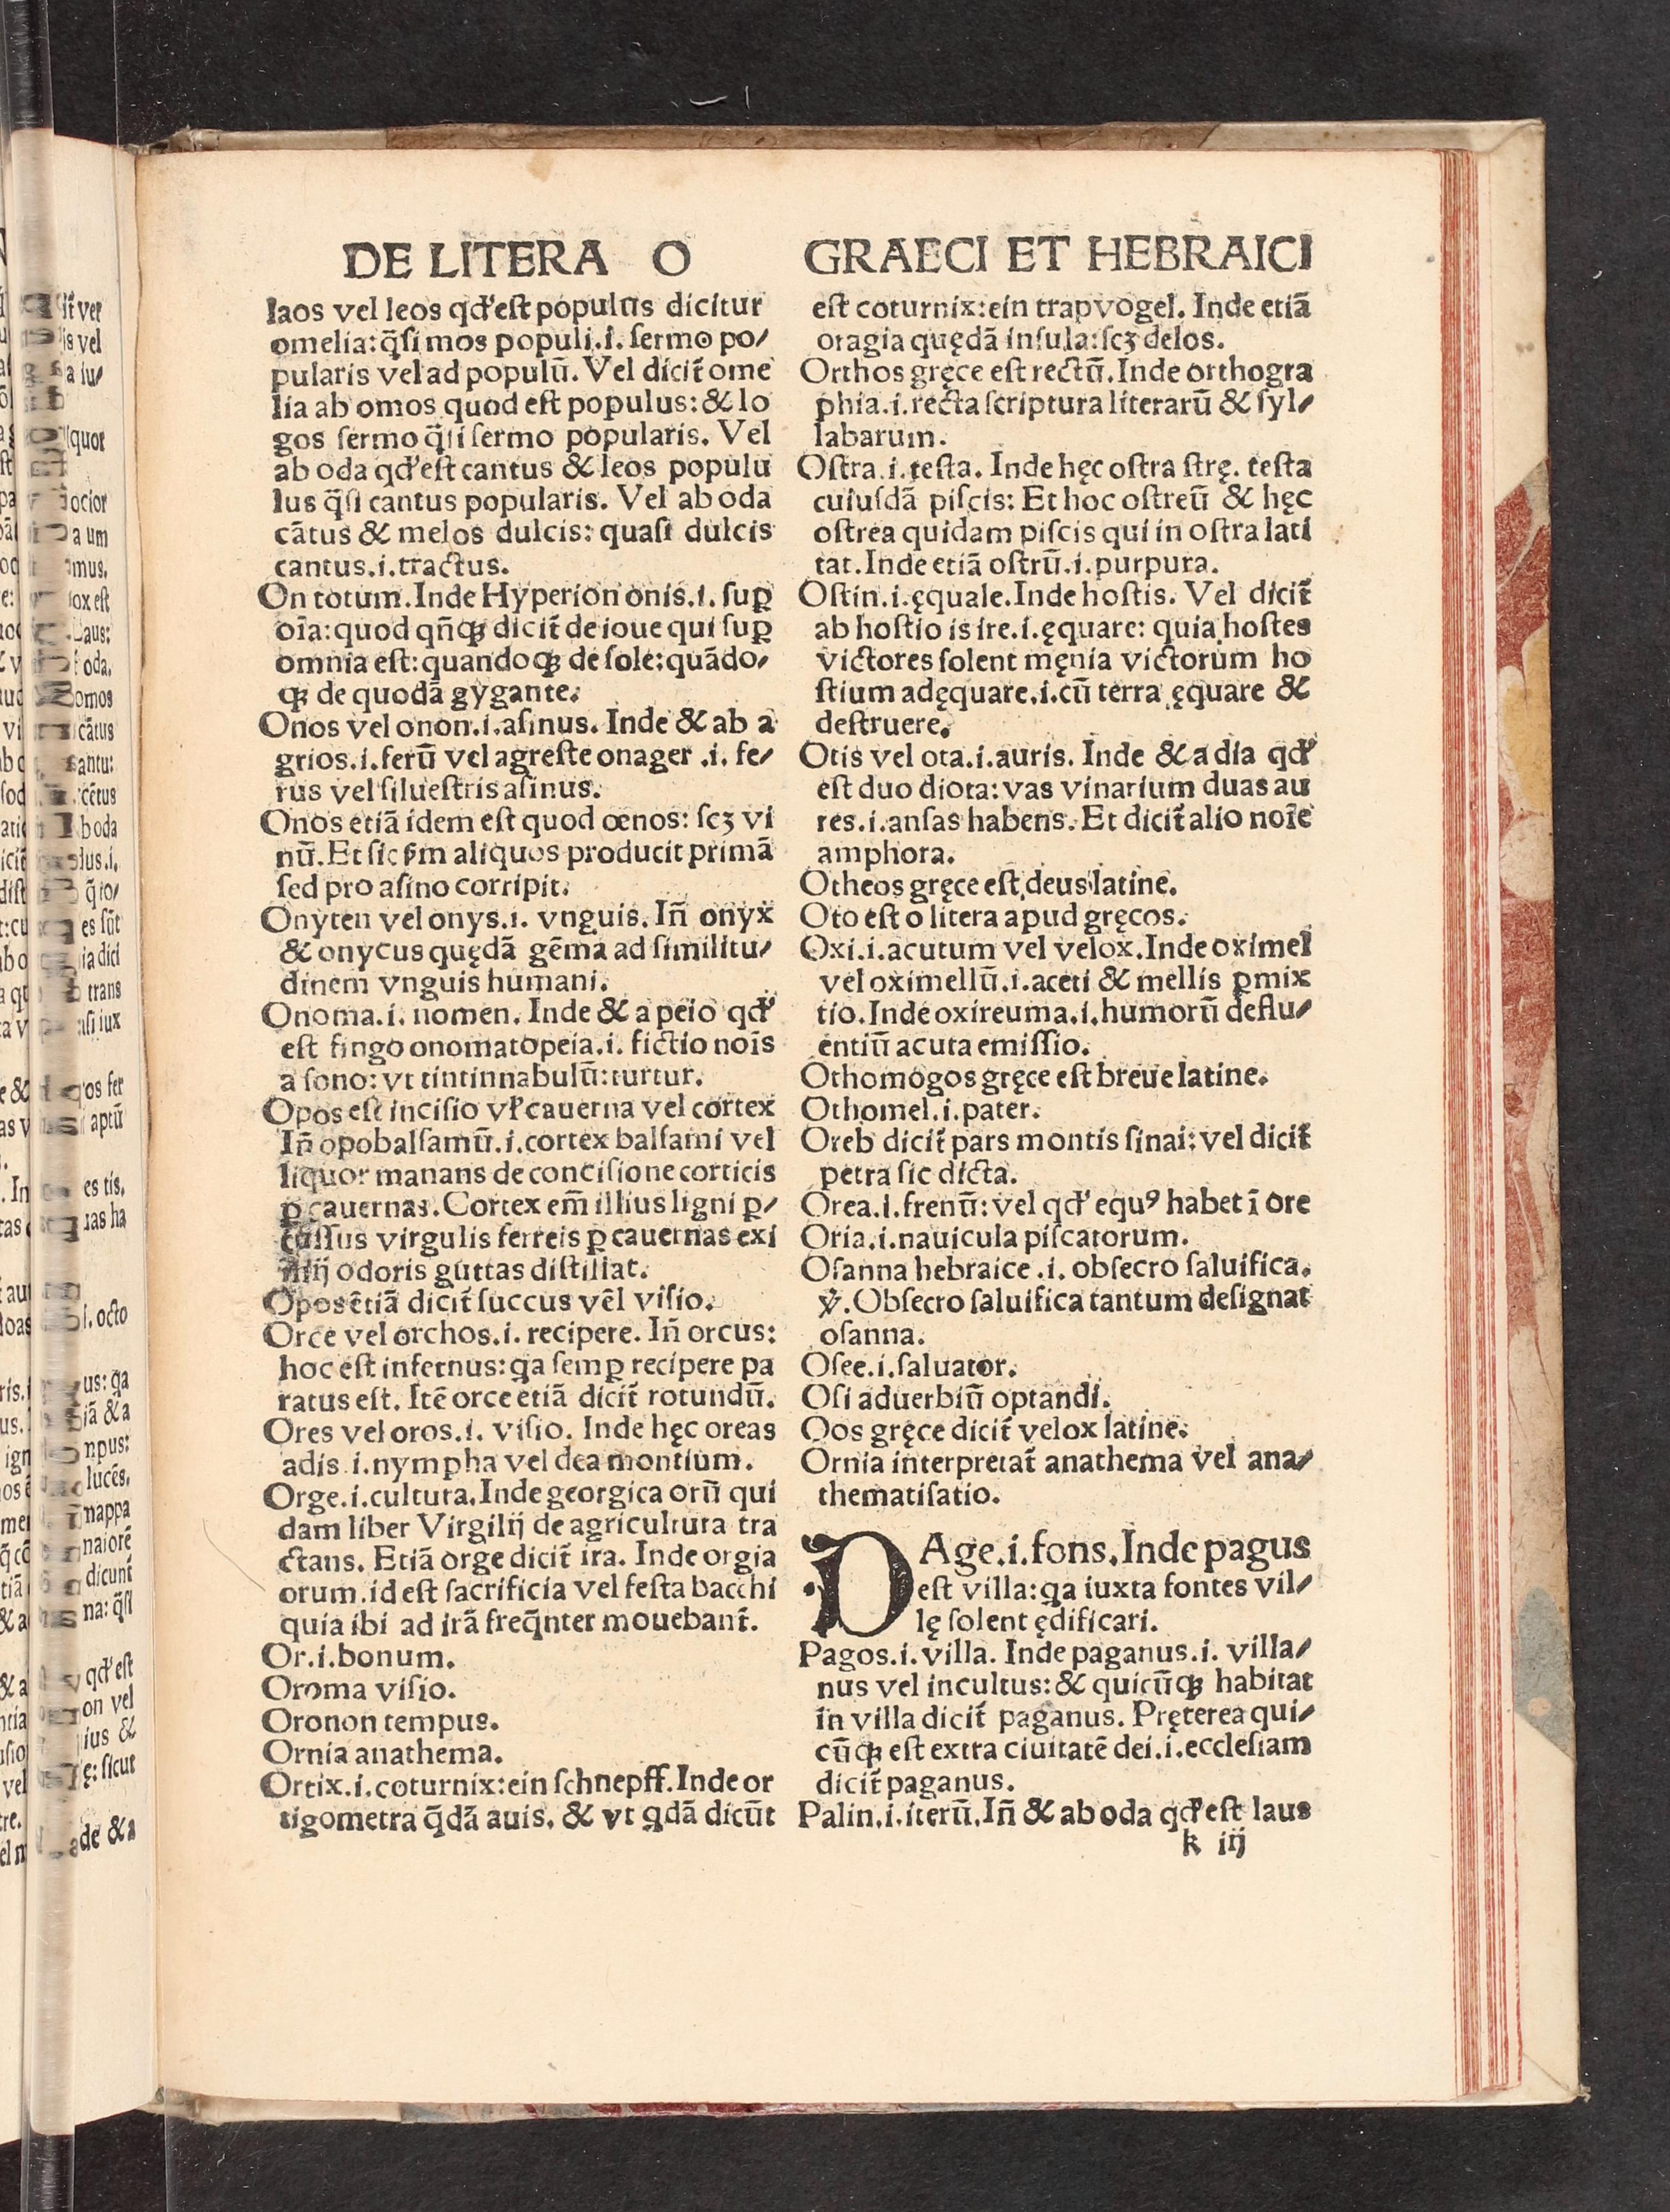 DE LITERA O
laos vel leos qđ eſt populus dicitur
omelia: q̄ſi mos populi .i. ſermo po/
pularis vel ad populū. Vel dicit᷑ ome
lia ab omos quod eſt populus: & lo
gos ſermo q̄ſi ſermo popularis. Vel
ab oda qđ eſt cantus & leos populu
lus q̄ſi cantus popularis. Vel ab oda
cātus & melos dulcis: quaſi dulcis
cantus .i. tractus.
On totum. Inde Hyperion onis .i. ſuꝑ
oīa: quod qn̄qꝫ dicit᷑ de ioue qui ſuꝑ
omnia eſt: quandoqꝫ de ſole: quādo/
qꝫ de quodā gygante.
Onos vel onon .i. aſinus. Inde & ab a
grios .i. ferū vel agreſte onager .i. fe/
rus vel ſilueſtris aſinus.
Onos etiā idem eſt quod œnos: ſcꝫ vi
nū. Et ſic ẜm aliquos producit primā
ſed pro aſino corripit.
Onyten vel onys .i. vnguis. In̄ onyx
& onycus quędā gēma ad ſimilitu/
dinem vnguis humani.
Onoma .i. nomen. Inde & a peio qđ
eſt fingo onomatopeia .i. fictio noīs
a ſono: vt tintinnabulū: turtur.
Opos eſt inciſio vł cauerna vel cortex
In̄ opobalſamū .i. cortex balſami vel
liquor manans de conciſione corticis
ꝑ cauernas. Cortex em̄ illius ligni ꝑ/
cuſſus virgulis ferreis ꝑ cauernas exi
mij odoris guttas diſtillat.
Opos etiā dicit᷑ ſuccus vel viſio.
Orce vel orchos .i. recipere. In̄ orcus:
hoc eſt infernus: ꝗa ſemꝑ recipere pa
ratus eſt. Itē orce etiā dicit᷑ rotundū.
Ores vel oros .i. viſio. Inde hęc oreas
adis .i. nympha vel dea montium.
Orge .i. cultura. Inde georgica orū qui
dam liber Virgilij de agricultura tra
ctans. Etiā orge dicit᷑ ira. Inde orgia
orum .id eſt ſacrificia vel feſta bacchi
quia ibi ad irā freq̄nter mouebant᷑.
Or .i. bonum.
Oroma viſio.
Oronon tempus.
Ornia anathema.
Ortix .i. coturnix: ein ſchnepff. Inde or
tigometra q̄dā auis. & vt ꝗdā dicūt
GRAECI ET HEBRAICI
eſt coturnix: ein trapvogel. Inde etiā
oragia quędā inſula: ſcꝫ delos.
Orthos gręce eſt rectū. Inde orthogra
phia .i. recta ſcriptura literarū & ſyl/
labarum.
Oſtra .i. teſta. Inde hęc oſtra ſtrę. teſta
cuiuſdā piſcis: Et hoc oſtreū & hęc
oſtrea quidam piſcis qui in oſtra lati
tat. Inde etiā oſtrū .i. purpura.
Oſtin .i. ęquale. Inde hoſtis. Vel dicit᷑
ab hoſtio is ire .i. ęquare: quia hoſtes
victores ſolent męnia victorum ho
ſtium adęquare .i. cū terra ęquare &
deſtruere.
Otis vel ota .i. auris. Inde & a dia qđ
eſt duo diota: vas vinarium duas au
res .i. anſas habens. Et dicit᷑ alio noīe
amphora.
Otheos gręce eſt deus latine.
Oto eſt o litera apud gręcos.
Oxi .i. acutum vel velox. Inde oximel
vel oximellū .i. aceti & mellis ꝑmix
tio. Inde oxireuma .i. humorū deflu/
entiū acuta emiſſio.
Othomogos gręce eſt breue latine.
Othomel .i. pater.
Oreb dicit᷑ pars montis ſinai: vel dicit᷑
petra ſic dicta.
Orea .i. frenū: vel qđ equꝰ habet ī ore
Oria .i. nauicula piſcatorum.
Oſanna hebraice .i. obſecro ſaluifica.
ꝟ. Obſecro ſaluifica tantum deſignat
oſanna.
Oſee .i. ſaluator.
Oſi aduerbiū optandi.
Oos gręce dicit᷑ velox latine.
Ornia interpretat᷑ anathema vel ana/
thematiſatio.
PAge .i. fons. Inde pagus
eſt villa: ꝗa iuxta fontes vil/
lę ſolent ędificari.
Pagos .i. villa. Inde paganus .i. villa/
nus vel incultus: & quicūqꝫ habitat
in villa dicit᷑ paganus. Pręterea qui/
cūqꝫ eſt extra ciuitatē dei .i. eccleſiam
dicit᷑ paganus.
Palin .i. iterū. In̄ & ab oda qđ eſt laus
k iij